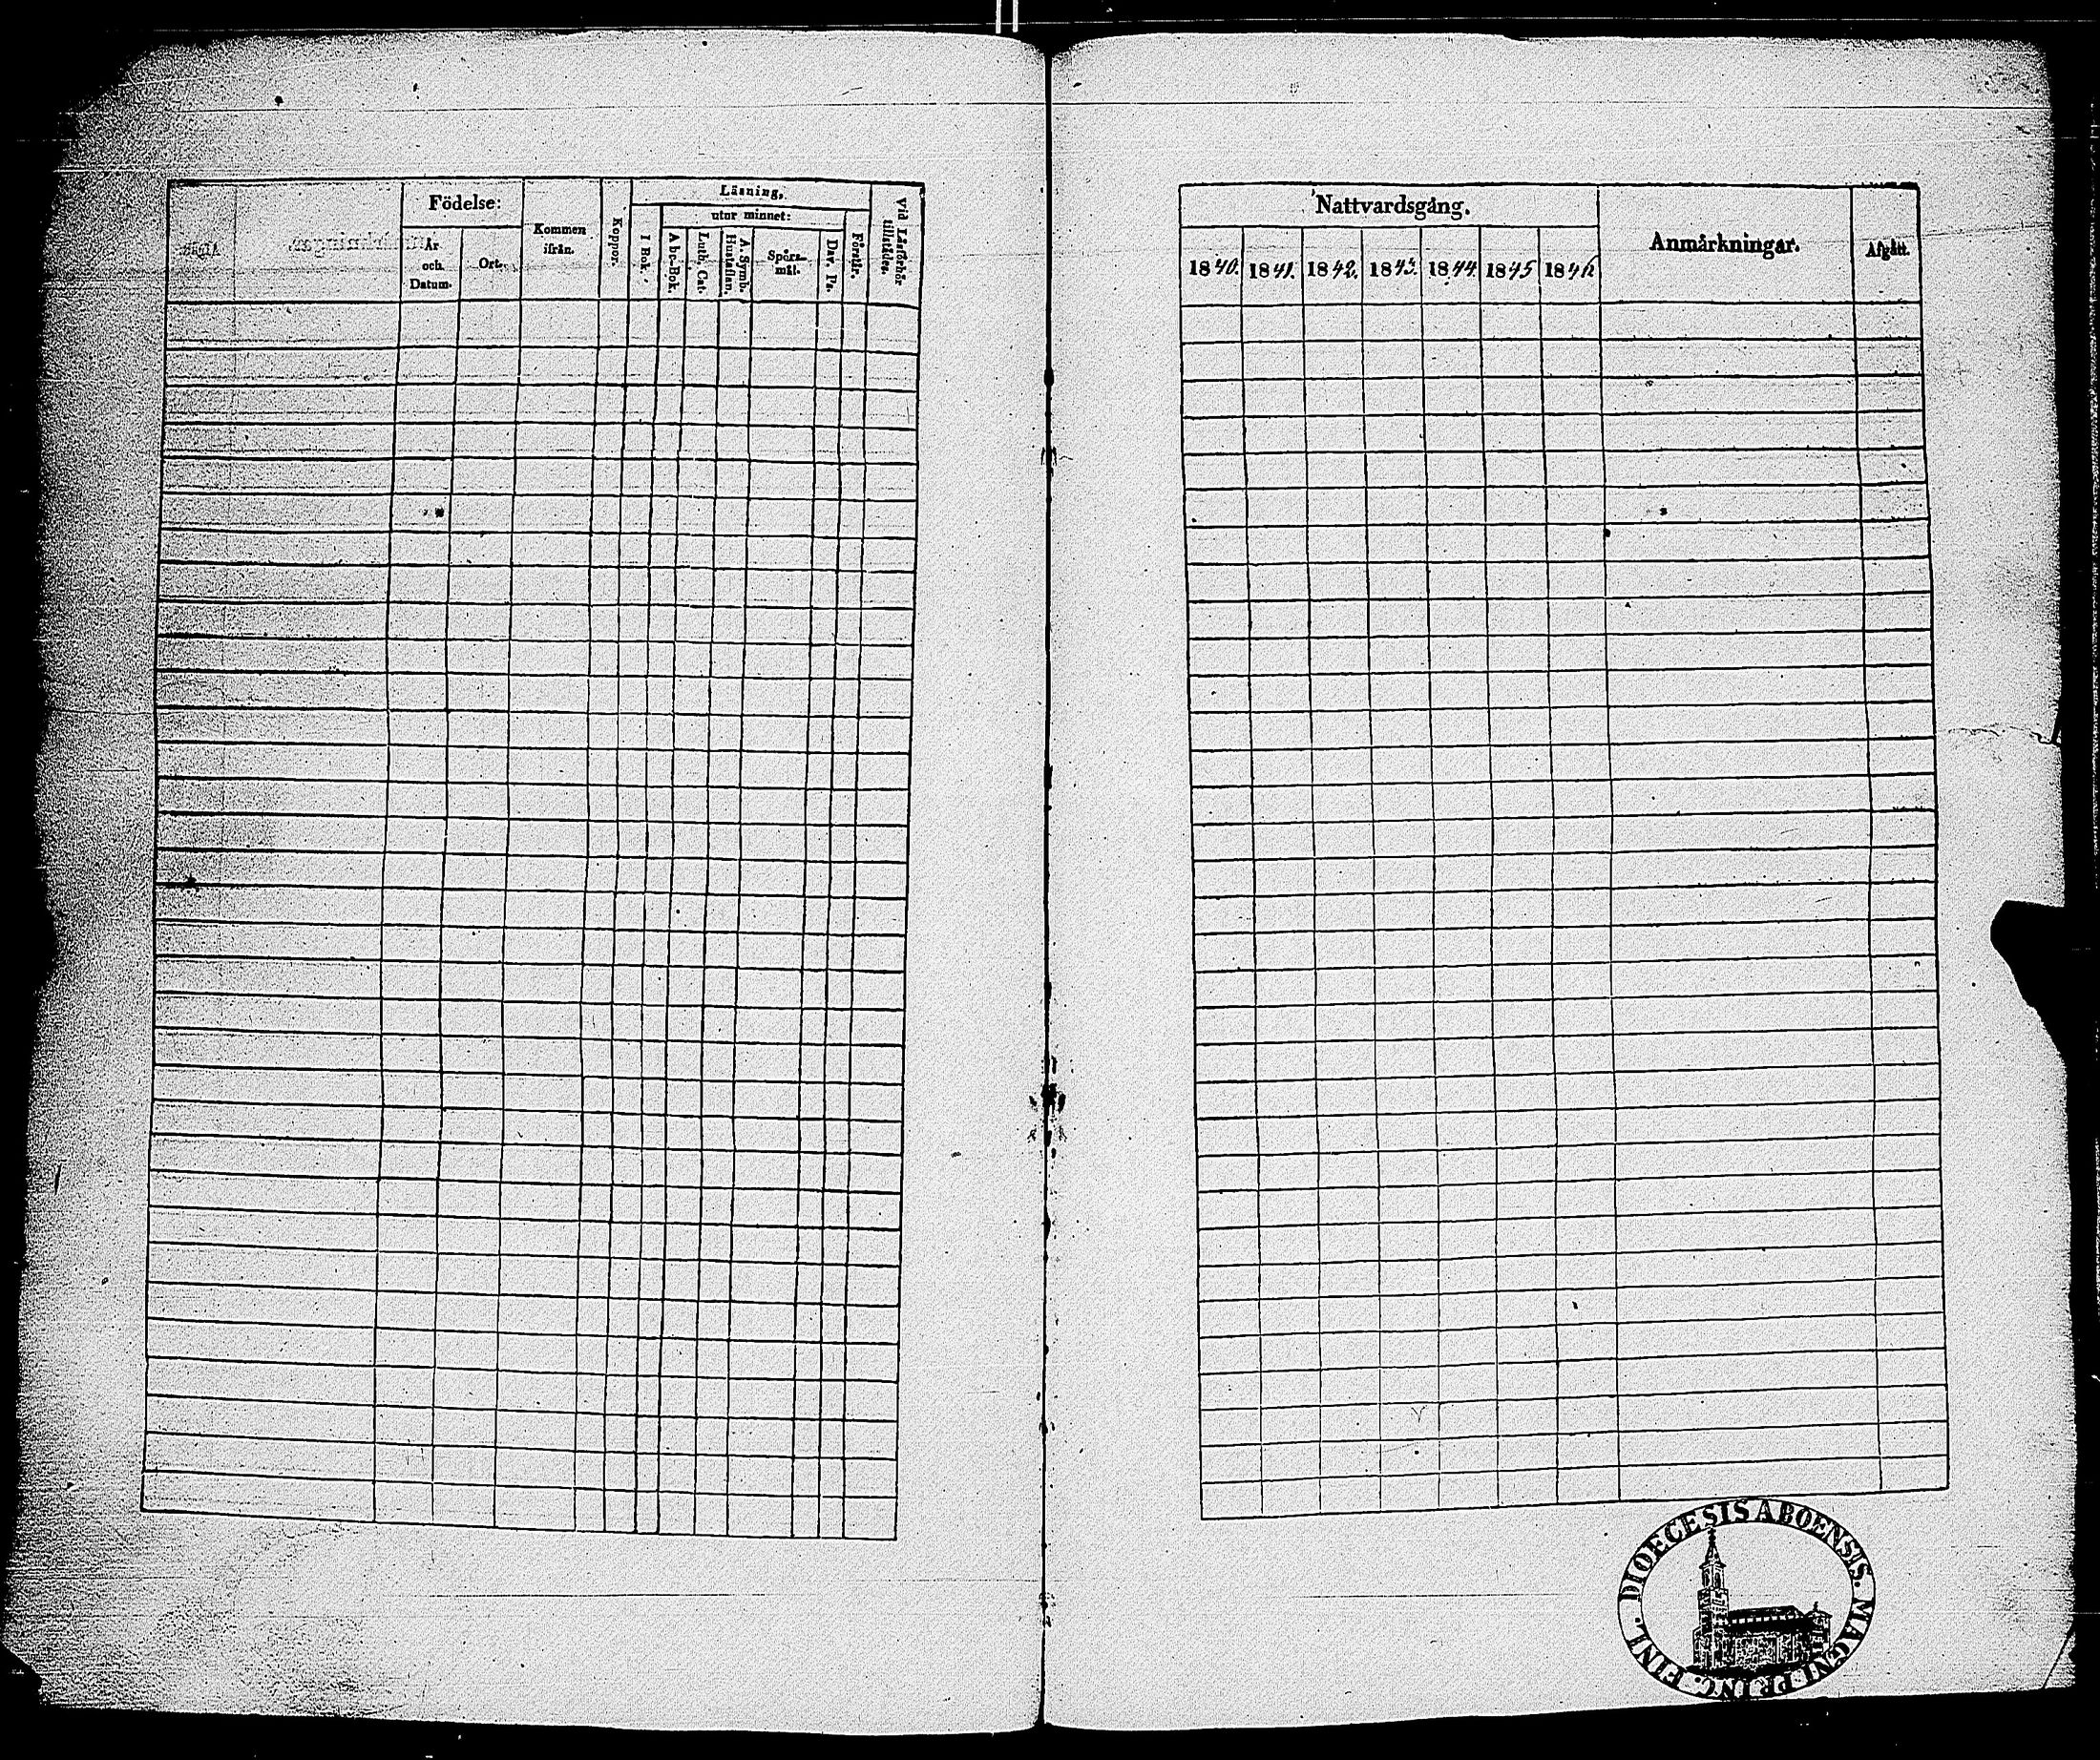 Födelse:
År och. Datum.
Ort.
Kommen ifrån.
Koppor.
Läsning.
I Bok.
utur minnet:
Abc-Bok.
Luth. Cat.
A. Symb. Hustaflan.
Spörs-mål.
Dav. Ps.
Förstår.
Vid Läsförhör tillstådes.
Nattvardsgång.
1840. 1841. 1842. 1843. 1844 1845 1846
Anmärkningar.
Afgått.
DIOECESIS ABOENSIS. MAGNI PRINC. FINL.